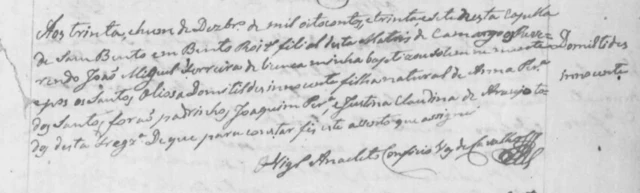 Aos trinta, e hum de Dezbrº de mil oitocentos, e trinta e sete nesta Capella
de Sam Bento em Bento Roiz filial desta Matris de Camargos o Reve-
rendo João Miguel Ferreira de licença minha baptizou solemnemente
e pos os Santos Oleos a Domitildes innocente filha natural de Anna Perª
dos Santos, forão padrinhos, Joaquim Perª, e Justina Claudina de Araujo to-
dos desta Fregª. De que para constar fis este assento que assignei
O Vigº Anacleto
Domitildes
innocente